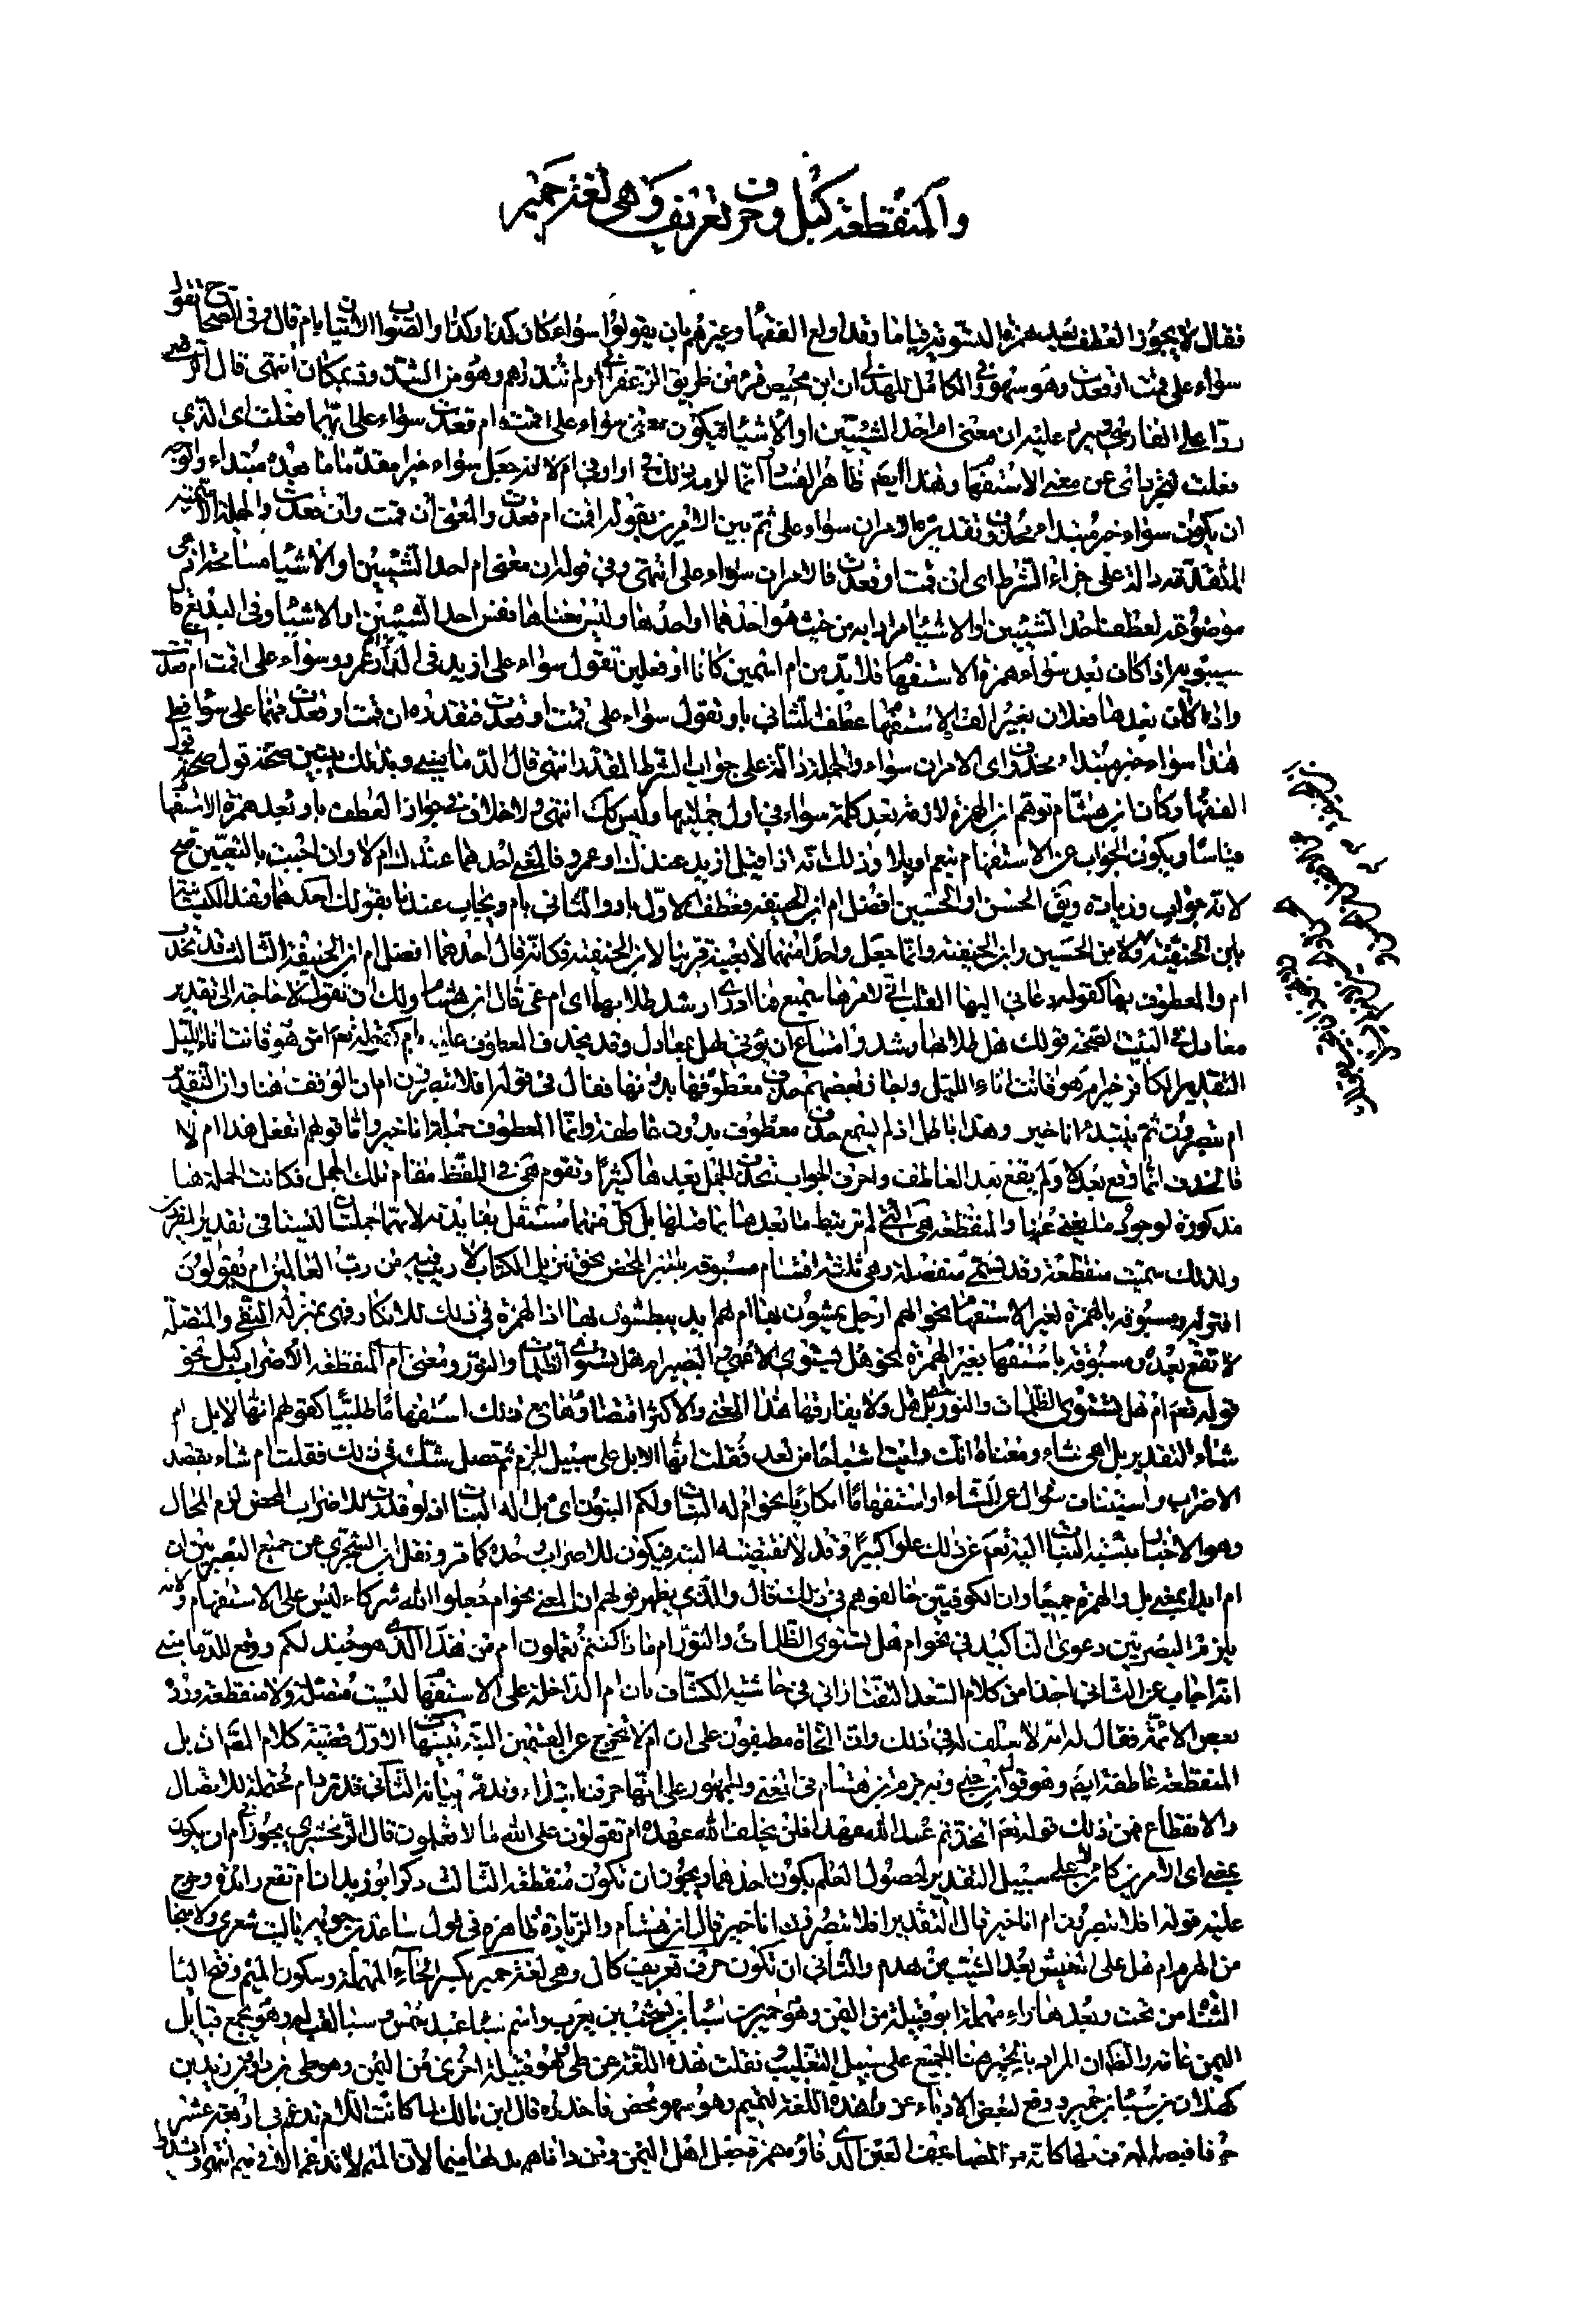 والمنقطعة كبل وحرف تعريف وهى لغة حمير
فقال لا يجوز العطف بعد همزة التسوية قياسا وقد اولع الفقها وغيرهم بان يقولوا سواء كان كذا وكذا والصواب الاتيان بام قال وفى الصحاح تقول
سواء على قمت او قعدت وهو سهو وفى الكامل للهذلى ان ابن محيصن قرء من طريق الزعفرانى اولم تنذرهم وهو من الشذوذ بمكان انتهى قال الرضى
ردا على الفارسى ويرد عليه ان معنى ام احد الشيئين او الاشياء فيكون معنى سواء على اقمت ام قعدت سواء على ايهما فعلت اى الذى
فعلت لتجرد اى عن معنى الاستفهام وهذا ايضا ظاهر الفساد انما لزمه ذلك فى او وفى ام لانه جعل سواء خبرا مقدما ما بعده مبتداء والوجه
ان يكون سواء خبر مبتداء محذوف تقديره الامران سواء على ثم بين الامرين بقوله اقمت ام قعدت والمعنى ان قمت وان قعدت والجملة الاسمية
المتقدمة دالة على جزاء الشرط اى ان قمت او قعدت فالامران سواء على انتهى وفى قوله ان معنى ام احد الشيئين او الاشيا مسامحة اذ هى
موضوعة لعطف احد الشيئين والاشيا مرادا به من حيث هو احدهما او احدها وليس معناها نفس احد الشيئين او الاشيا وفى البديع قال
سيبويه اذا كان بعد سواء همزة الاستفهام فلا بد من ام اسمين كانا او فعلين تقول سواء على ازيد فى الدار ام عمرو وسواء على اقمت ام قعدت
واذا كان بعدها فعلان بغير الف الاستفهام عطف الثانى باو تقول سواء على قمت او قعدت فتقديره ان قمت او قعدت فهما على سواء فعلى
هذا سواء خبر مبتداء محذوف اى الامران سواء والجملة دالة على جواب الشرط المقدر انتهى قال الدمامينى وبذلك يتبين صحة قول
الفقها وكان ابن هشام توهم ان الهمزة لازمة بعد كلمة سواء فى اول جملتيها وليس كذلك انتهى ولا خلاف فى جواز العطف باو بعد همزة الاستفهام
قياسا ويكون الجواب عن الاستفهام بنعم او بلا وذلك انه اذا قيل ازيد عندك او عمرو فالمعنى احدهما عندك ام لا وان اجبت بالتعيين صح
لانه جواب وزيادة ويق الحسن او الحسين افضل ام ابن الحنفية فعطف الاول باو والثانى بام ويجاب عندنا بقولك احدهما وعند الكيسانية
بابن الحنفية ولا من الحسين وابن الحنفية وانما جعل واحدا منهما لا بعينه قرينا لابن الحنفية فكانه قال احدهما افضل ام ابن الحنفية الثالث قد تحذف
ام والمعطوف بها كقوله دعانى اليها القلب انى لامرها سميع فما ادرى ارشد طلابها اى ام غى قال ابن هشام ولك ان تقول لا حاجة الى تقدير
معادل فى البيت لصحة قولك هل طلابها رشد وامتناع ان يؤتى لهل بمعادل وقد يحذف المعطوف عليه وام كقوله تعم امن هو قانت اناء الليل
التقدير الكافر خير امن هو قانت اناء الليل واجاز بعضهم حذف معطوفها بدونها فقال فى قوله افلا تبصرون ام ان الوقف هنا وان التقدير
ام تبصرون ثم يبتدء انا خير وهذا باطل اذ لم يسمع حذف معطوف بدون عاطفه وانما المعطوف جملة انا خير واما قولهم اتفعل هذا ام لا
فالحذف انما وقع بعد لا ولم يقع بعد العاطف واحرف الجواب تحذف الجمل بعدها كثيرا وتقوم هى فى اللفظ مقام تلك الجمل فكانت الجملة هنا
مذكورة لوجود ما يغنى عنها والمنقطعة هى التى لم يرتبط ما بعدها بما قبلها بل كل منهما مستقل بفايدته لانهما جملتان ليستا فى تقدير المفردين
ولذلك سميت منقطعة وقد تسمى منفصلة وهى ثلثة اقسام مسبوقة بالخبر المحض نحو تنزيل الكتاب لا ريب فيه من رب العالمين ام يقولون
افتريه ومسبوقة بالهمزة لغير الاستفهام نحو الهم ارجل يمشون بها ام لهم ايد يبطشون بها اذ الهمزة فى ذلك للانكار فهى بمنزلة النفى والمتصلة
لا تقع بعده ومسبوقة باستفهام بغير الهمزة نحو هل يستوى الاعمى والبصير ام هل تستوى الظلمات والنور ومعنى ام المنقطعة الاضراب كبل نحو
قوله تعم ام هل تستوى الظلمات والنور اى بل هل ولا يفارقها هذا المعنى والاكثر اقتضاؤها مع ذلك استفهاما طلبيا كقولهم انها لابل ام
شاء التقدير بل اهى شاء ومعناه انك رايت اشباحا من بعد فقلت انها الابل على سبيل الجزم ثم حصل شك فى ذلك فقلت ام شاء بقصد
الاضراب واستيناف سؤال عن الشاء او استفهاما انكاريا نحو ام له البنات ولكم البنون اى بل اله البنات اذ لو قدرت للاضراب المحض لزم المحال
وهو الاخبار بنسبة البنات اليه تعم عن ذلك علوا كبيرا وقد لا تقتضيه البتة فيكون للاضراب وحده كما مر ونقل ابن الشجرى عن جميع البصريين ان
ام ابدا بمعنى بل والهمزة جميعا وان الكوفيين خالفوهم فى ذلك قال والذى يظهر قولهم ان المعنى نحو ام جعلوا لله شركاء ليس على الاستفهام ولانه
يلزم البصريين دعوى التاكيد فى نحو ام هل تستوى الظلمات والنور ام ماذا كنتم تعملون ام من هذا الذى هو جند لكم ووقع للدمامينى
انه اجاب عن الثانى اخذا من كلام السعد التفتازانى فى حاشية الكشاف بان ام الداخلة على الاستفهام ليست متصلة ولا منقطعة ورد
بعض الائمة فقال له انه لا سلف له فى ذلك وان النحاة مطبقون على ان ام لا تخرج عن القسمين البتة تنبيهات الاول قضية كلام المص ان بل
المنقطعة عاطفة ايضا وهو قول ابن جنى وبه جزم ابن هشام فى المغنى والجمهور على انها حرف ابتداء وبدقه بيانه الثانى قد ترد ام محتملة للاتصال
والانقطاع فمن ذلك قوله تعم اتخذتم عند الله عهدا فلن يخلف الله عهده ام تقولون على الله ما لا تعلمون قال الزمخشرى يجوز فى ام ان يكون
بمعنى اى الامرين كائن على سبيل التقدير لحصول العلم بكون احدهما ويجوز ان تكون منقطعة الثالث ذكر ابو زيد ان ام تقع زائدة وخرج
عليه قوله افلا تبصرون ام انا خير قال التقدير افلا تبصرون انا خير قال ابن هشام والزيادة ظاهرة فى قول ساعدة بن جويه يا ليت شعرى ولا منجا
من الهرم ام هل على العيش بعد الشيب من ندم والثانى ان تكون حرف تعريف كال وهى لغة حمير بكسر الحاء المهملة وسكون الميم وفتح اليا
المثناة من تحت وبعدها راء مهملة ابو قبيلة من اليمن وهو حمير بن سبا بن يشجب بن يعرب واسم سبا عبد شمس وسبا لقب له وهو يجمع قبايل
اليمن عامة والظ ان المراد بالحمير هنا الجميع على سبيل التغليب نقلت هذه اللغة عن طى وهو قبيلة اخرى من اليمن وهو طى بن ادد بن زيد بن
كهلان بن سبا بن حمير ووقع لبعض الادباء عزو هذه اللغة لتميم وهو سهو محض فاحذره قال ابن مالك لما كانت اللام تدغم فى اربعة عشر
حرفا فيصير المعرف بها كانه من المضاعف العين الذى فاؤه همزة جعل اهل اليمن ومن داناهم بدلها ميما لان الميم لا تدغم الا فى ميم انتهى